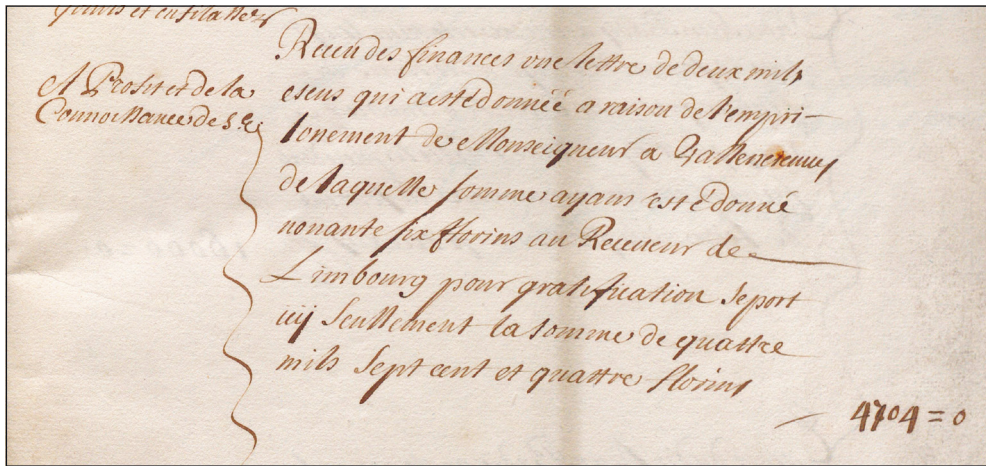 quitts et enfilasser
A Profit et de la
Connoissance de S. E.
Receu des finances vne lettre de deux mils
escus qui a esté donnéé a raison de l'empri-
sonement de Monseigneur a Vallencienne
de laquelle somme ayans esté donné
nonante six florins au Receueur de
Limbourg pour gratification se port
icij seullement la somme de quattre
mils sept cent et quattre florins
4704 = 0